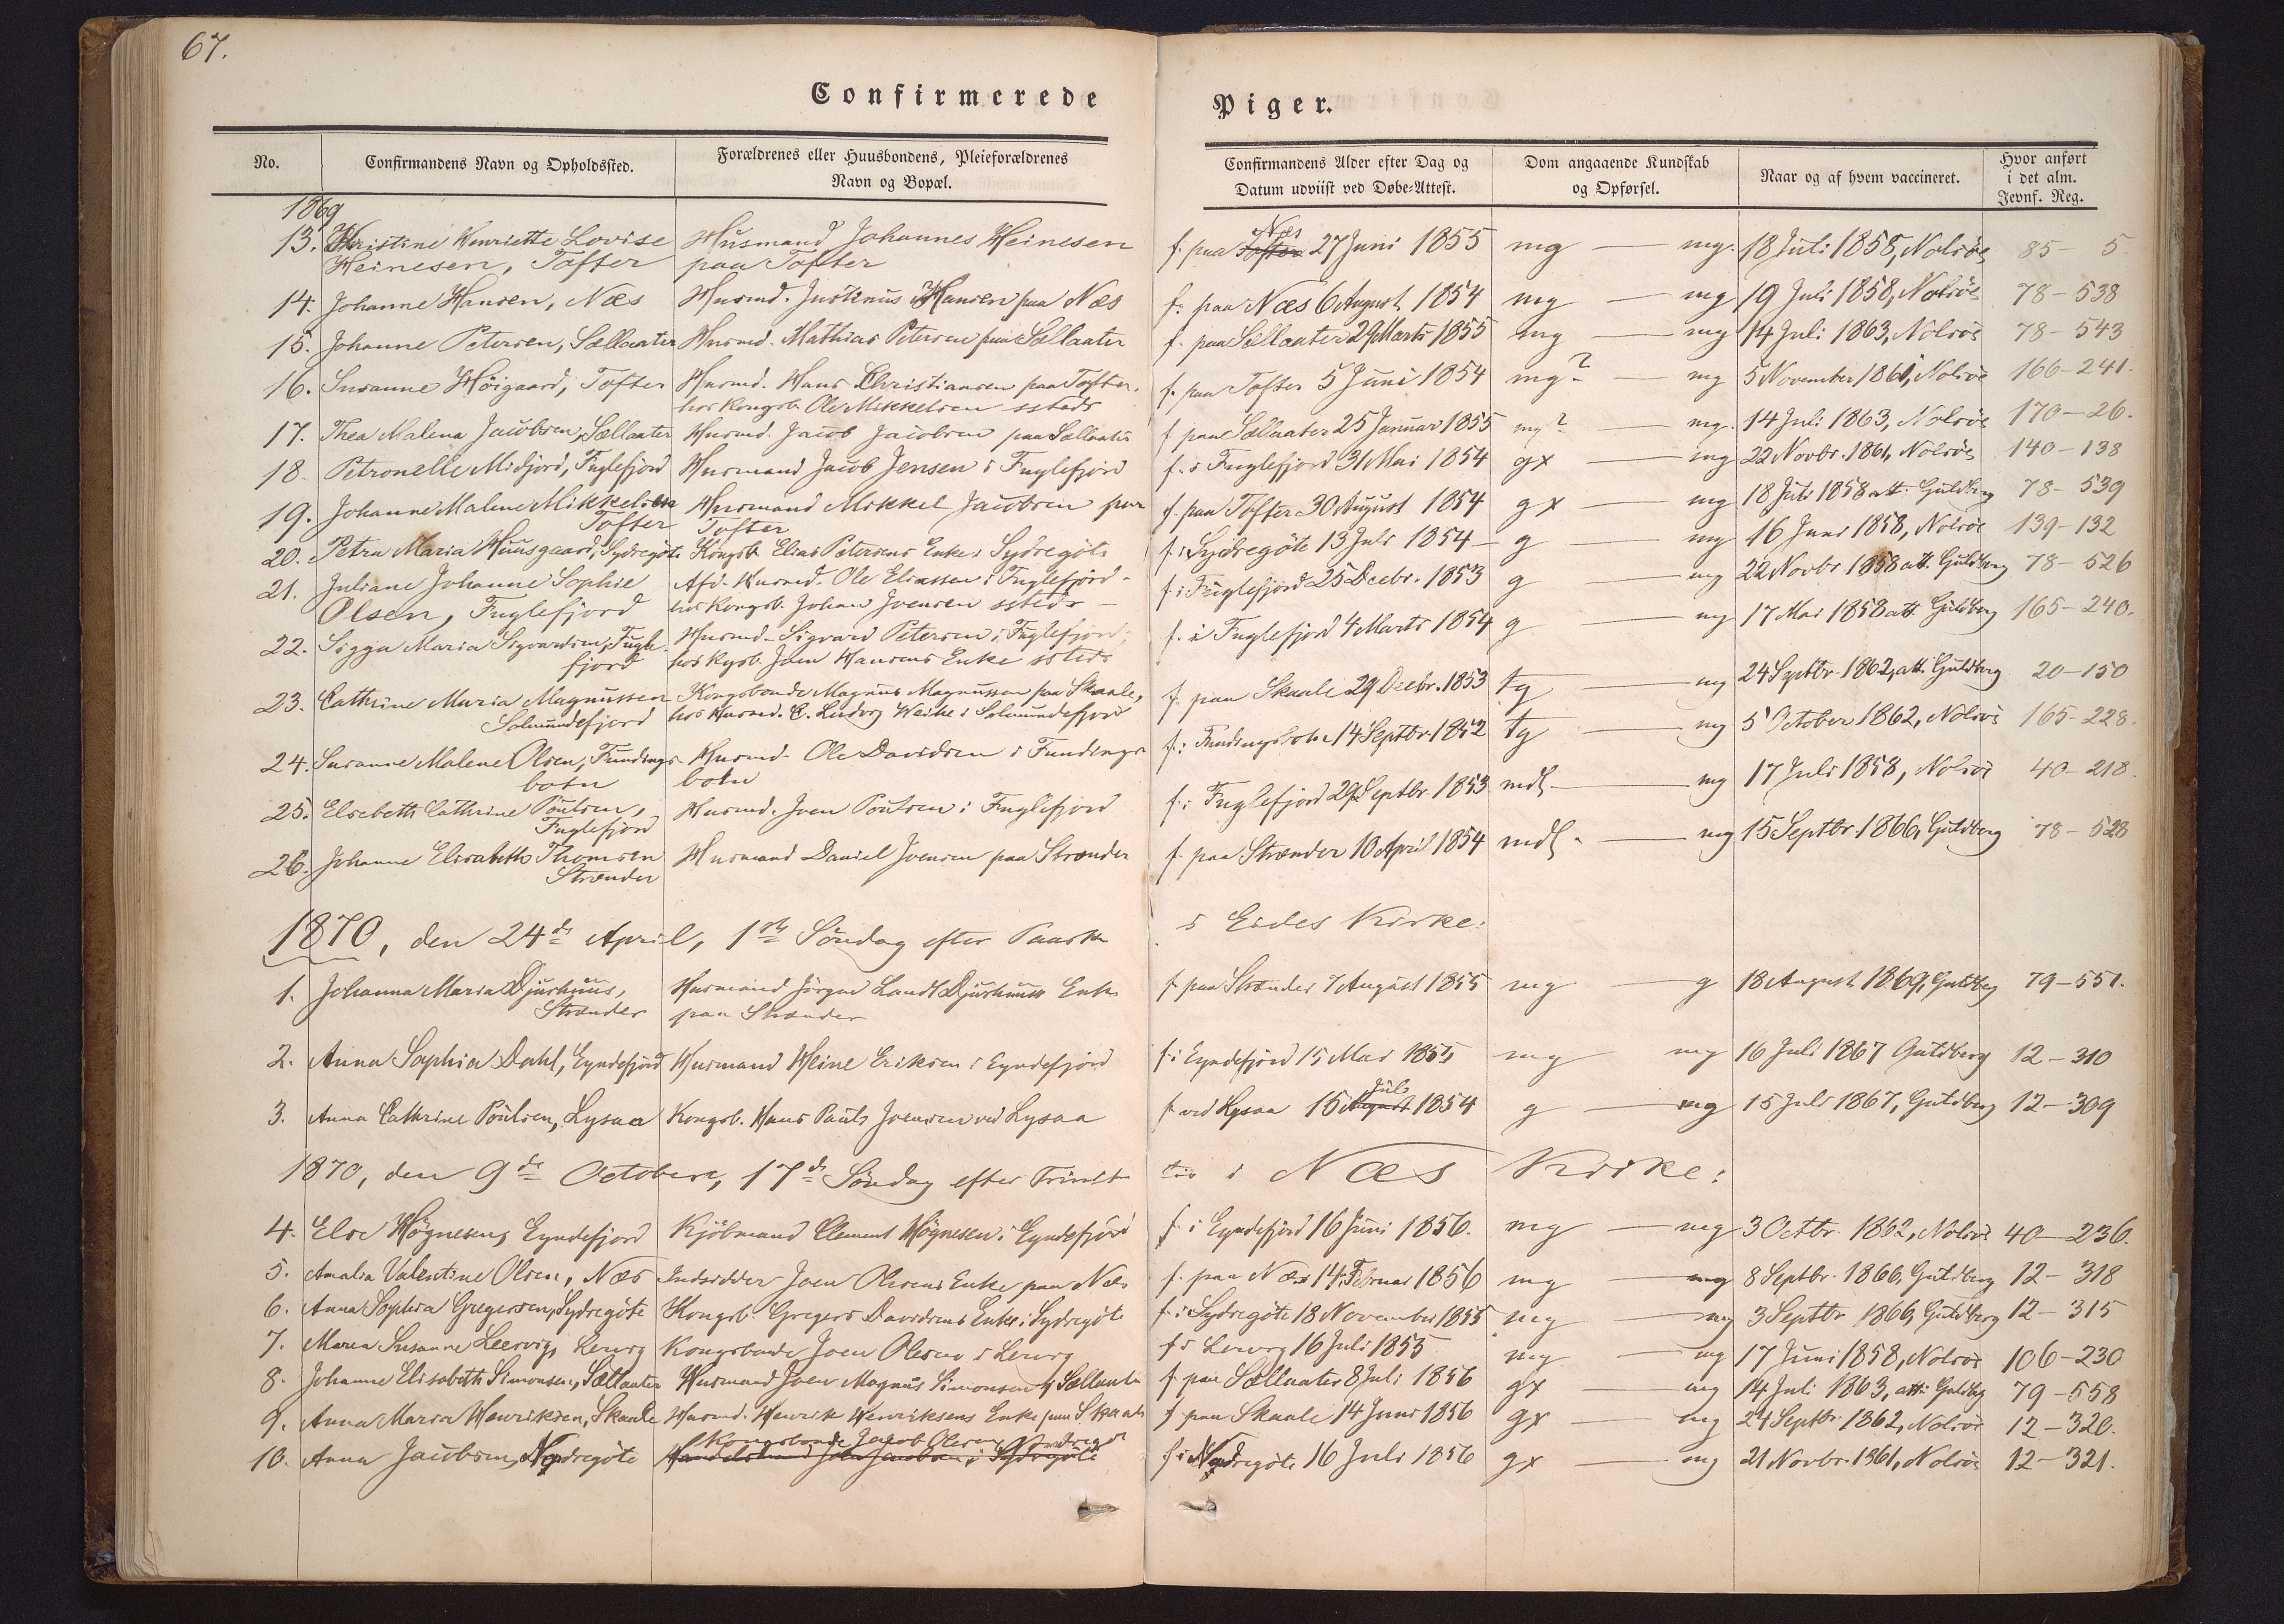 67.
Confirmerede Piger.
No. Confirmandens Navn og Opholdssted. Forældrenes eller Huusbondens, Pleieforældrenes Navn og Bopæl. Confirmandens Alder efter Dag og Datum udviist ved Døbe-Attest. Dom angaaende Kundskab og Opførsel. Naar og af hvem vaccineret. Hvor anført i det alm. Jevnf. Reg.
1869
13. Kristine Henriette Lovise Husmand Johannes Heinesen f. paa Næs 27 Juni 1855 mg — mg. 18 Juli 1858, Nolsöe 85 - 5
Heinesen, Tofter paa Tofter
14. Johanne Hansen, Næs Husmd. Justinus Hansen paa Næs f. paa Næs 6 August 1854 mg — mg 19 Juli 1858, Nolsöe 78 - 538
15. Johanne Petersen, Sællaater Husmd. Mathias Petersen paa Sællaater f. paa Sællaater 29 Marts 1855 mg — mg 14 Juli 1863, Nolsöe 78 - 543
16. Susanne Höigaard, Tofter Husmd. Hans Christiansen paa Tofter. f. paa Tofter 5 Juni 1854 mg? — mg 5 November 1861, Nolsöe 166 - 241.
hos Kongsb. Ole Mikkelsen ssteds
17. Thea Malena Jacobsen, Sællaater Husmd. Jacob Jacobsen paa Sællaater f. paa Sællaater 25 Januar 1855 mg? — mg. 14 Juli 1863, Nolsöe 170 - 26.
18. Petronelle Midjord, Fuglefjord Husmand Jacob Jensen i Fuglefjord f. i Fuglefjord 31 Mai 1854 gx — mg 22 Novbr. 1861, Nolsöe 140 - 138
19. Johanne Malene Mikkelsen Husmand Mikkel Jacobsen paa f. paa Tofter 30 August 1854 gx — mg 18 Juli 1858 att. Guldberg 78 - 539
Tofter Tofter
20. Petra Maria Huusgaard, Sydregöte Kongsb. Elias Petersens Enke i Sydregöte f. i Sydregöte 13 Juli 1854 — g — mg 16 Juni 1858, Nolsöe 139 - 132
21. Juliane Johanne Sophie Afd. Husmd. Ole Eliassen i Fuglefjord - f. i Fuglefjord 25 Decbr. 1853 g — mg 22 Novbr 1858 att. Guldberg 78 - 526
Olsen, Fuglefjord hos Kongsb. Johan Joensen ssteds —
22. Sigga Maria Sigvardsen, Fugle- Husmd. Sigvard Petersen i Fuglefjord, f. i Fuglefjord 4 Marts 1854 g — mg 17 Mai 1858 att Guldberg 165 - 240.
fjord hos Kgsb. Joen Hansens Enke ssteds
23. Cathrine Maria Magnussen Kongsbonde Magnus Magnussen paa Skaale, f. paa Skaale 29 Decbr. 1853 tg — mg 24 Septbr. 1862, att. Guldberg 20 - 150
Solmundefjord hos Husmd. C. Ludvig Weihe i Solmundefjord
24. Susanne Malene Olsen, Fundings- Husmd. Ole Davidsen i Fundings- f. i Fundingsbotn 14 Septbr. 1852 tg — mg 5 October 1862, Nolsöe 165 - 228.
botn botn
25. Elsebeth Cathrine Poulsen, Husmd. Joen Poulsen i Fuglefjord f. i Fuglefjord 29 Septbr. 1853 mdl. — mg 17 Juli 1858, Nolsöe 40 - 218.
Fuglefjord
26. Johanne Elisabeth Thomsen Husmand Daniel Joensen paa Strænder f. paa Strænder 10 April 1854 mdl. — mg 15 Septbr. 1866, Guldberg 78 - 528
Strænder
1870, den 24de April, 1ste Söndag efter Paaske i Eides Kirke:
1. Johanna Maria Djurhuus, Husmand Jörgen Landt Djurhuus Enke f. paa Strænder 7 August 1855 mg — g 18 August 1869, Guldberg 79 - 551.
Strænder paa Strænder
2. Anna Sophia Dahl, Eyndefjord Husmand Heine Eriksen i Eyndefjord f. i Eyndefjord 15 Mai 1855 mg mg 16 Juli 1867 Guldberg 12 - 310
3. Anna Cathrine Poulsen, Lysaa Kongsb. Hans Pauls Joensen ved Lysaa f. ved Lysaa 16 Juli 1854 g — mg 15 Juli 1867, Guldberg 12 - 309
1870, den 9de Octobere, 17de Söndag efter Trinit- tis i Næs Kirke:
4. Else Högnesen, Eyndefjord Kjöbmand Clement Högnesen i Eyndefjord f. i Eyndefjord 16 Juni 1856. mg — mg 3 Octbr. 1862, Nolsöe 40 - 236.
5. Amalia Valentine Olsen, Næs Indsidder Joen Olsens Enke paa Næs f. paa Næs 14. Februar 1856 mg — mg 8 Septbr. 1866, Guldberg 12 - 318
6. Anna Sophia Gregersen, Sydregöte Kongsb. Gregers Davidsens Enke i Sydregöte f. i Sydregöte 18 November 1855 mg — mg 3 Septbr 1866, Guldberg 12 - 315
7. Maria Susanne Leervig, Lervig Kongsbonde Joen Olesen i Lervig f. i Lervig 16 Juli 1855 mg — mg 17 Juni 1858, Nolsöe 106 - 230
8. Johanne Elisabeth Simonsen, Sællaater Husmand Joen Magnus Simonsen Sællaater f. paa Sællaater 8 Juli 1856 gx — mg 14 Juli 1863, att. Guldbg 79 - 558
9. Anna Maria Henriksen, Skaale Husmd. Henrik Henriksens Enke paa Skaale f. paa Skaale 14 Juni 1856 gx — mg 24 Septbr. 1862, Nolsöe 12 - 320.
Kongsbonde Jacob Olesen
10. Anna Jacobsen, Nordregöte Handelsmand Joen Jacobsen i Sydregöte f. i Nordregöte 16 Juli 1856 gx — mg 21 Novbr. 1861, Nolsöe 12 - 321.